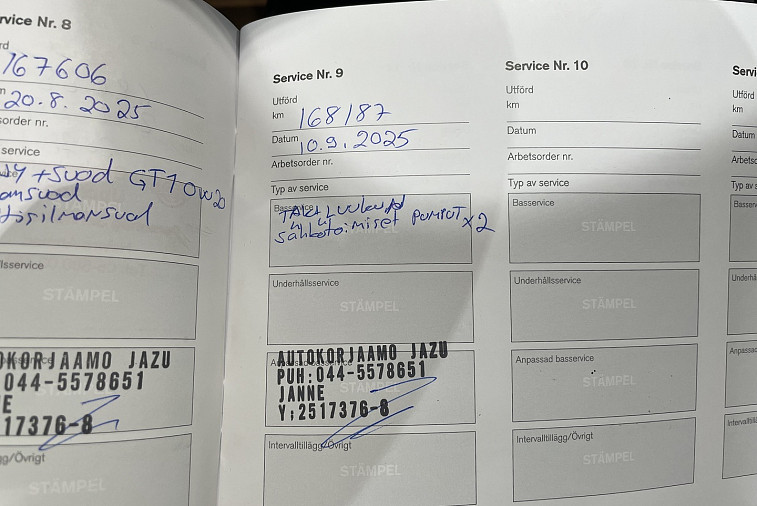 rvice Nr. 8
rd
167606
m 20.8.2025
sorder nr.
service
öljy +suod GT1 0W20
ansuod
tösilmansuod
llsservice
STÄMPEL
OKORJAAMO JAZU
:044-5578651
E
17376-8
g/Övrigt
STÄMPEL
Service Nr. 9
Utförd
km 168187
Datum 10.9.2025
Arbetsorder nr.
Typ av service
Basservice
TAKALUUKUN
sähkötoimiset PUMPUT x2
STÄMPEL
Underhållsservice
STÄMPEL
Anpassad basservice
AUTOKORJAAMO JAZU
PUH:044-5578651
JANNE
Y:2517376-8
Intervalltillägg/Övrigt
STÄMPEL
Service Nr. 10
Utförd
km
Datum
Arbetsorder nr.
Typ av service
Basservice
STÄMPEL
Underhållsservice
STÄMPEL
Anpassad basservice
STÄMPEL
Intervalltillägg/Övrigt
STÄMPEL
Servi
Utförd
km
Datum
Arbetso
Typ av s
Basserv
Underhå
Anpassad
Intervalltil